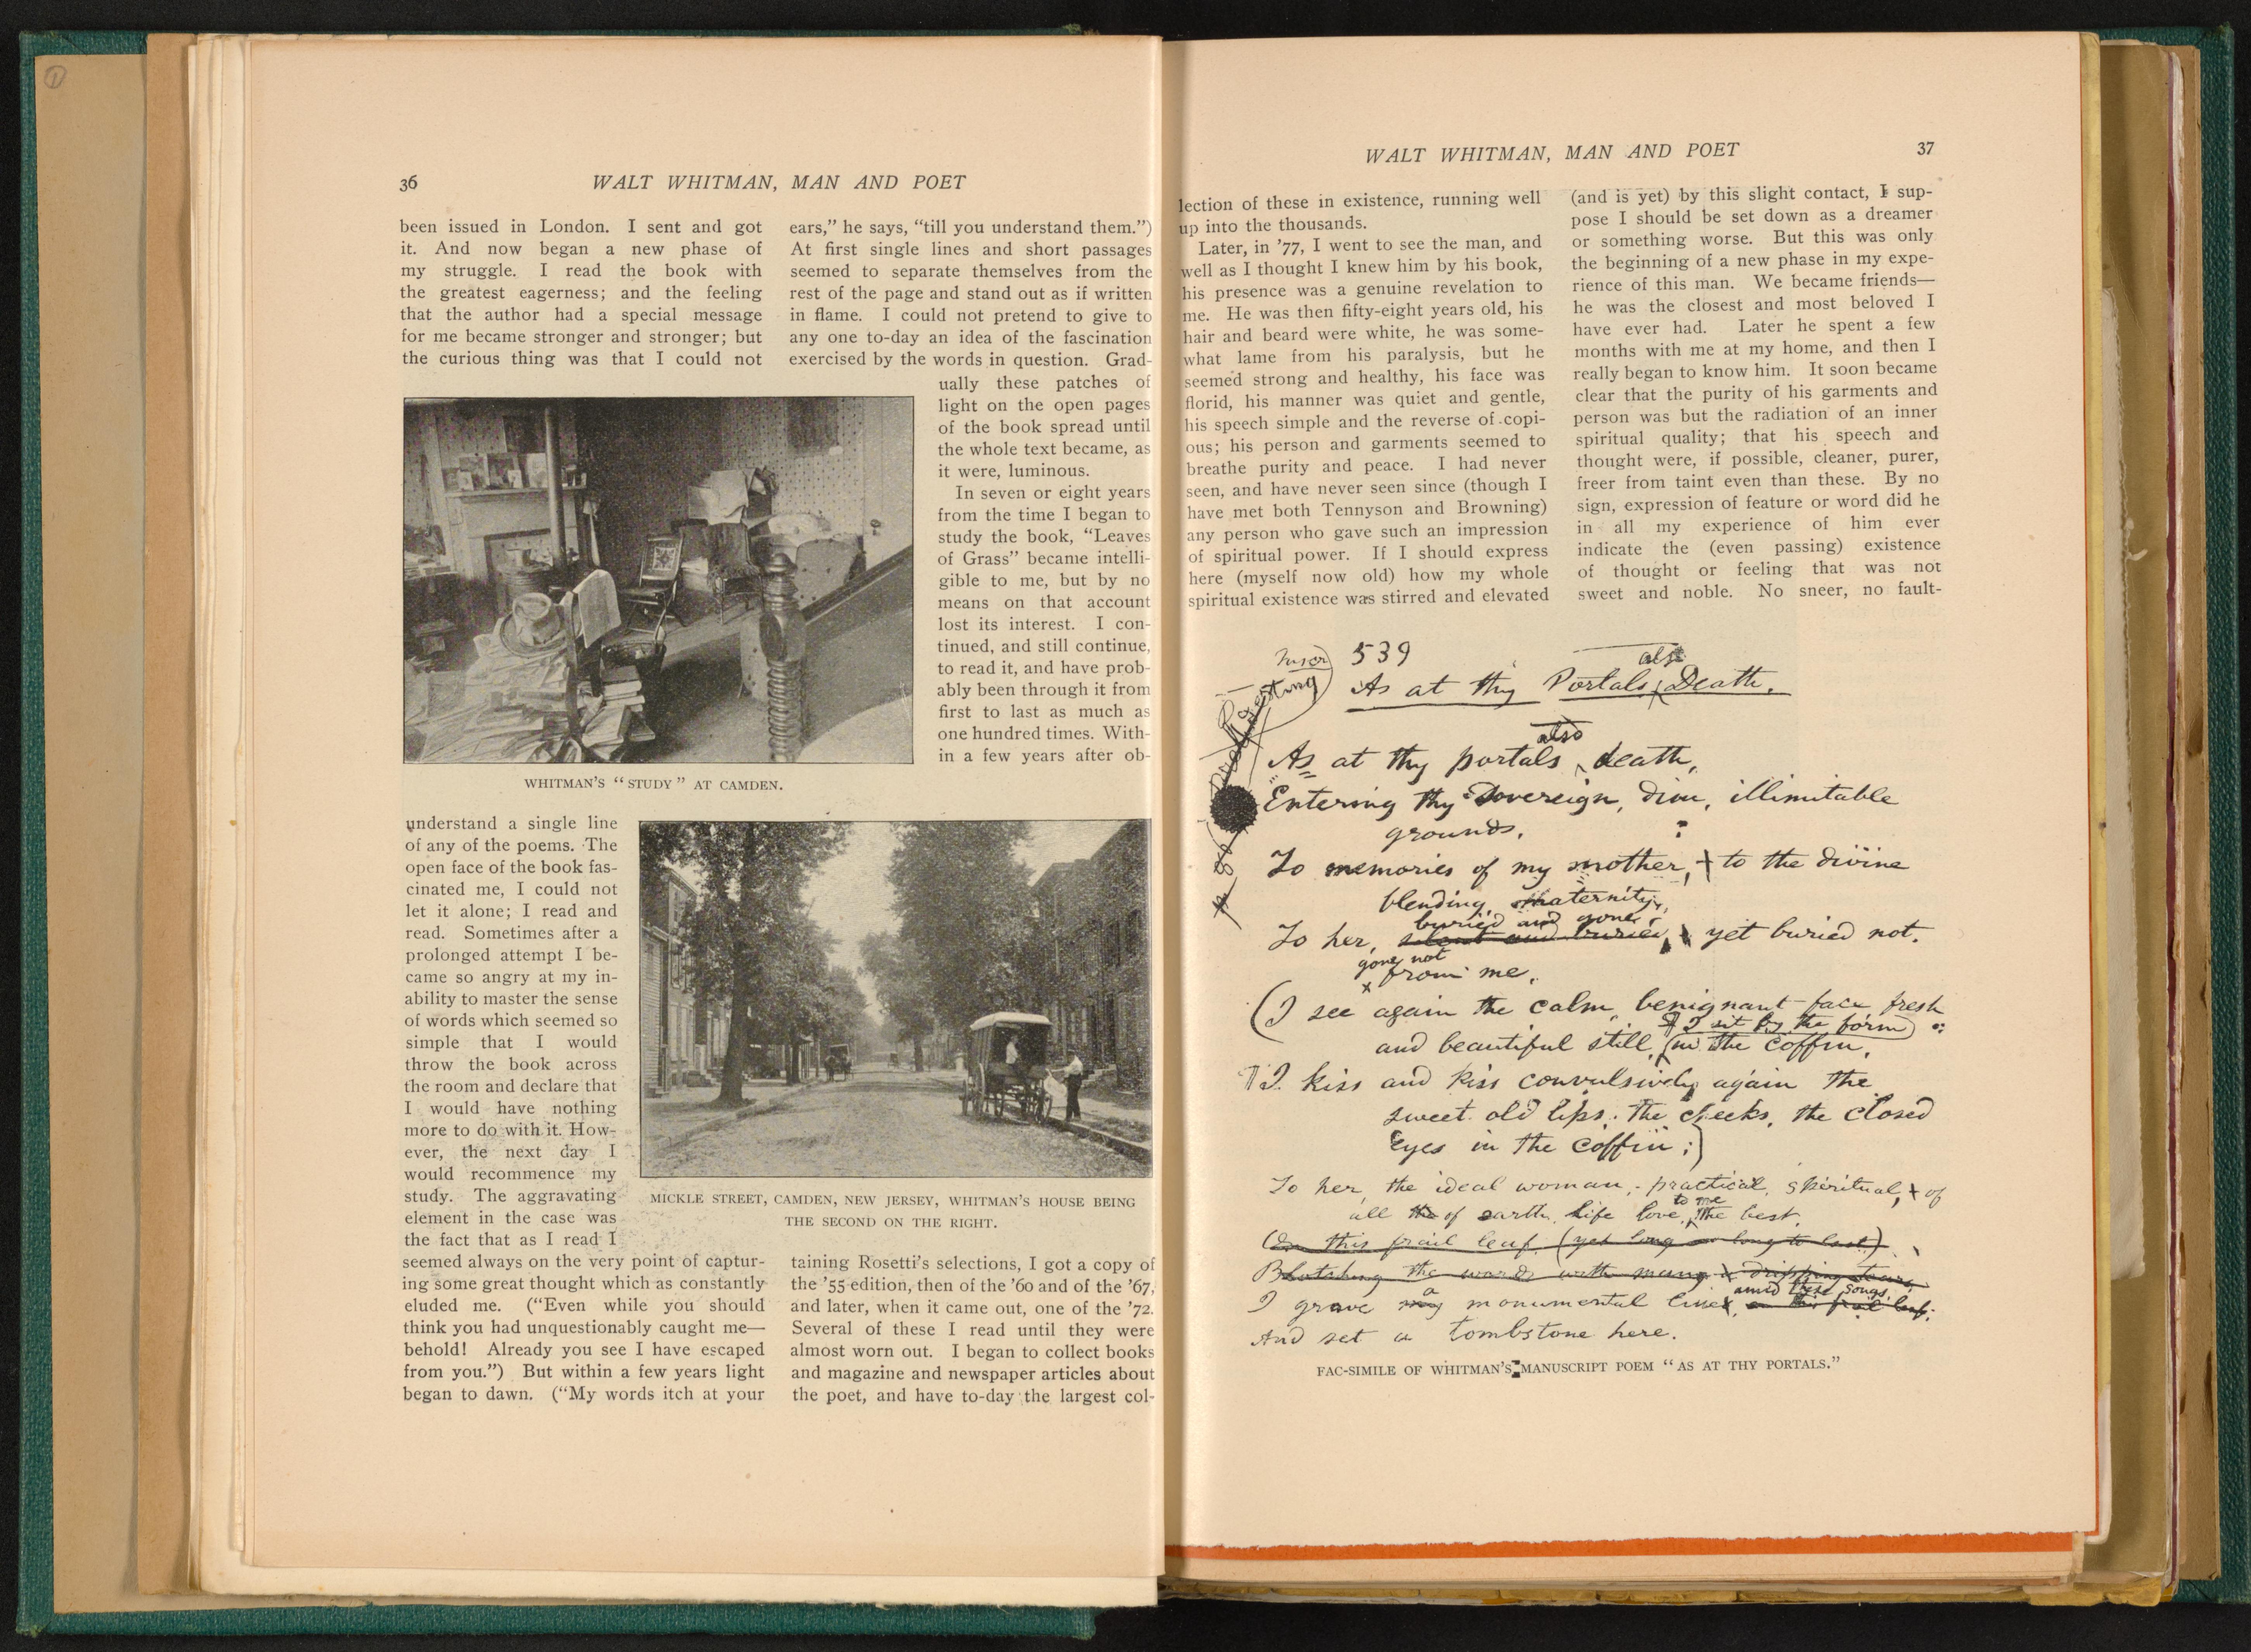 1
36
WALT WHITMAN, MAN AND POET
been issued in London. I sent and got
it. And now began a new phase of
my struggle. I read the book with
the greatest eagerness; and the feeling
that the author had a special message
for me became stronger and stronger; but
the curious thing was that I could not
WHITMAN'S "STUDY" AT CAMDEN.
understand a single line
of any of the poems. The
open face of the book fas-
cinated me, I could not
let it alone; I read and
read. Sometimes after a
prolonged attempt I be-
came so angry at my in-
ability to master the sense
of words which seemed so
simple that I would
throw the book across
the room and declare that
I would have nothing
more to do with it. How-
ever, the next day I
would recommence my
study. The aggravating
element in the case was
the fact that as I read I
seemed always on the very point of captur-
ing some great thought which as constantly
eluded me. ("Even while you should
think you had unquestionably caught me—
behold! Already you see I have escaped
from you.") But within a few years light
began to dawn. ("My words itch at your
ears," he says, "till you understand them.")
At first single lines and short passages
seemed to separate themselves from the
rest of the page and stand out as if written
in flame. I could not pretend to give to
any one to-day an idea of the fascination
exercised by the words in question. Grad-
ually these patches of
light on the open pages
of the book spread until
the whole text became, as
it were, luminous.
In seven or eight years
from the time I began to
study the book, "Leaves
of Grass" became intelli-
gible to me, but by no
means on that account
lost its interest. I con-
tinued, and still continue,
to read it, and have prob-
ably been through it from
first to last as much as
one hundred times. With-
in a few years after ob-
MICKLE STREET, CAMDEN, NEW JERSEY, WHITMAN'S HOUSE BEING
THE SECOND ON THE RIGHT.
taining Rosetti's selections, I got a copy of
the '55 edition, then of the '60 and of the '67,
and later, when it came out, one of the '72.
Several of these I read until they were
almost worn out. I began to collect books
and magazine and newspaper articles about
the poet, and have to-day the largest col-
WALT WHITMAN, MAN AND POET
37
lection of these in existence, running well
up into the thousands.
Later, in '77, I went to see the man, and
well as I thought I knew him by his book,
his presence was a genuine revelation to
me. He was then fifty-eight years old, his
hair and beard were white, he was some-
what lame from his paralysis, but he
seemed strong and healthy, his face was
florid, his manner was quiet and gentle,
his speech simple and the reverse of copi-
ous; his person and garments seemed to
breathe purity and peace. I had never
seen, and have never seen since (though I
have met both Tennyson and Browning)
any person who gave such an impression
of spiritual power. If I should express
here (myself now old) how my whole
spiritual existence was stirred and elevated
(and is yet) by this slight contact, I sup-
pose I should be set down as a dreamer
or something worse. But this was only
the beginning of a new phase in my expe-
rience of this man. We became friends—
he was the closest and most beloved I
have ever had. Later he spent a few
months with me at my home, and then I
really began to know him. It soon became
clear that the purity of his garments and
person was but the radiation of an inner
spiritual quality; that his speech and
thought were, if possible, cleaner, purer,
freer from taint even than these. By no
sign, expression of feature or word did he
in all my experience of him ever
indicate the (even passing) existence
of thought or feeling that was not
sweet and noble. No sneer, no fault-
539
also
As at thy Portals Death.
also
As at thy portals death,
Entering thy Sovereign, dim, illimitable
grounds.
To memories of my mother, + to the divine
blending, maternity,
buried and gone
To her, silent and buried, yet buried not.
gone not
from me,
(I see again the calm benignant face fresh
I sit by the form
and beautiful still, in the coffin,
I kiss and kiss convulsively again the
sweet old lips, the cheeks, the closed
eyes in the coffin;)
To her, the ideal woman, practical, spiritual, + of
to me
all of earth, life love, the best,
On this frail leaf, (yet long long to last)
the words with many dripping tears,
a
amid these songs,
I grave my monumental line, on this frail leaf,
And set a tombstone here.
FAC-SIMILE OF WHITMAN'S MANUSCRIPT POEM "AS AT THY PORTALS."